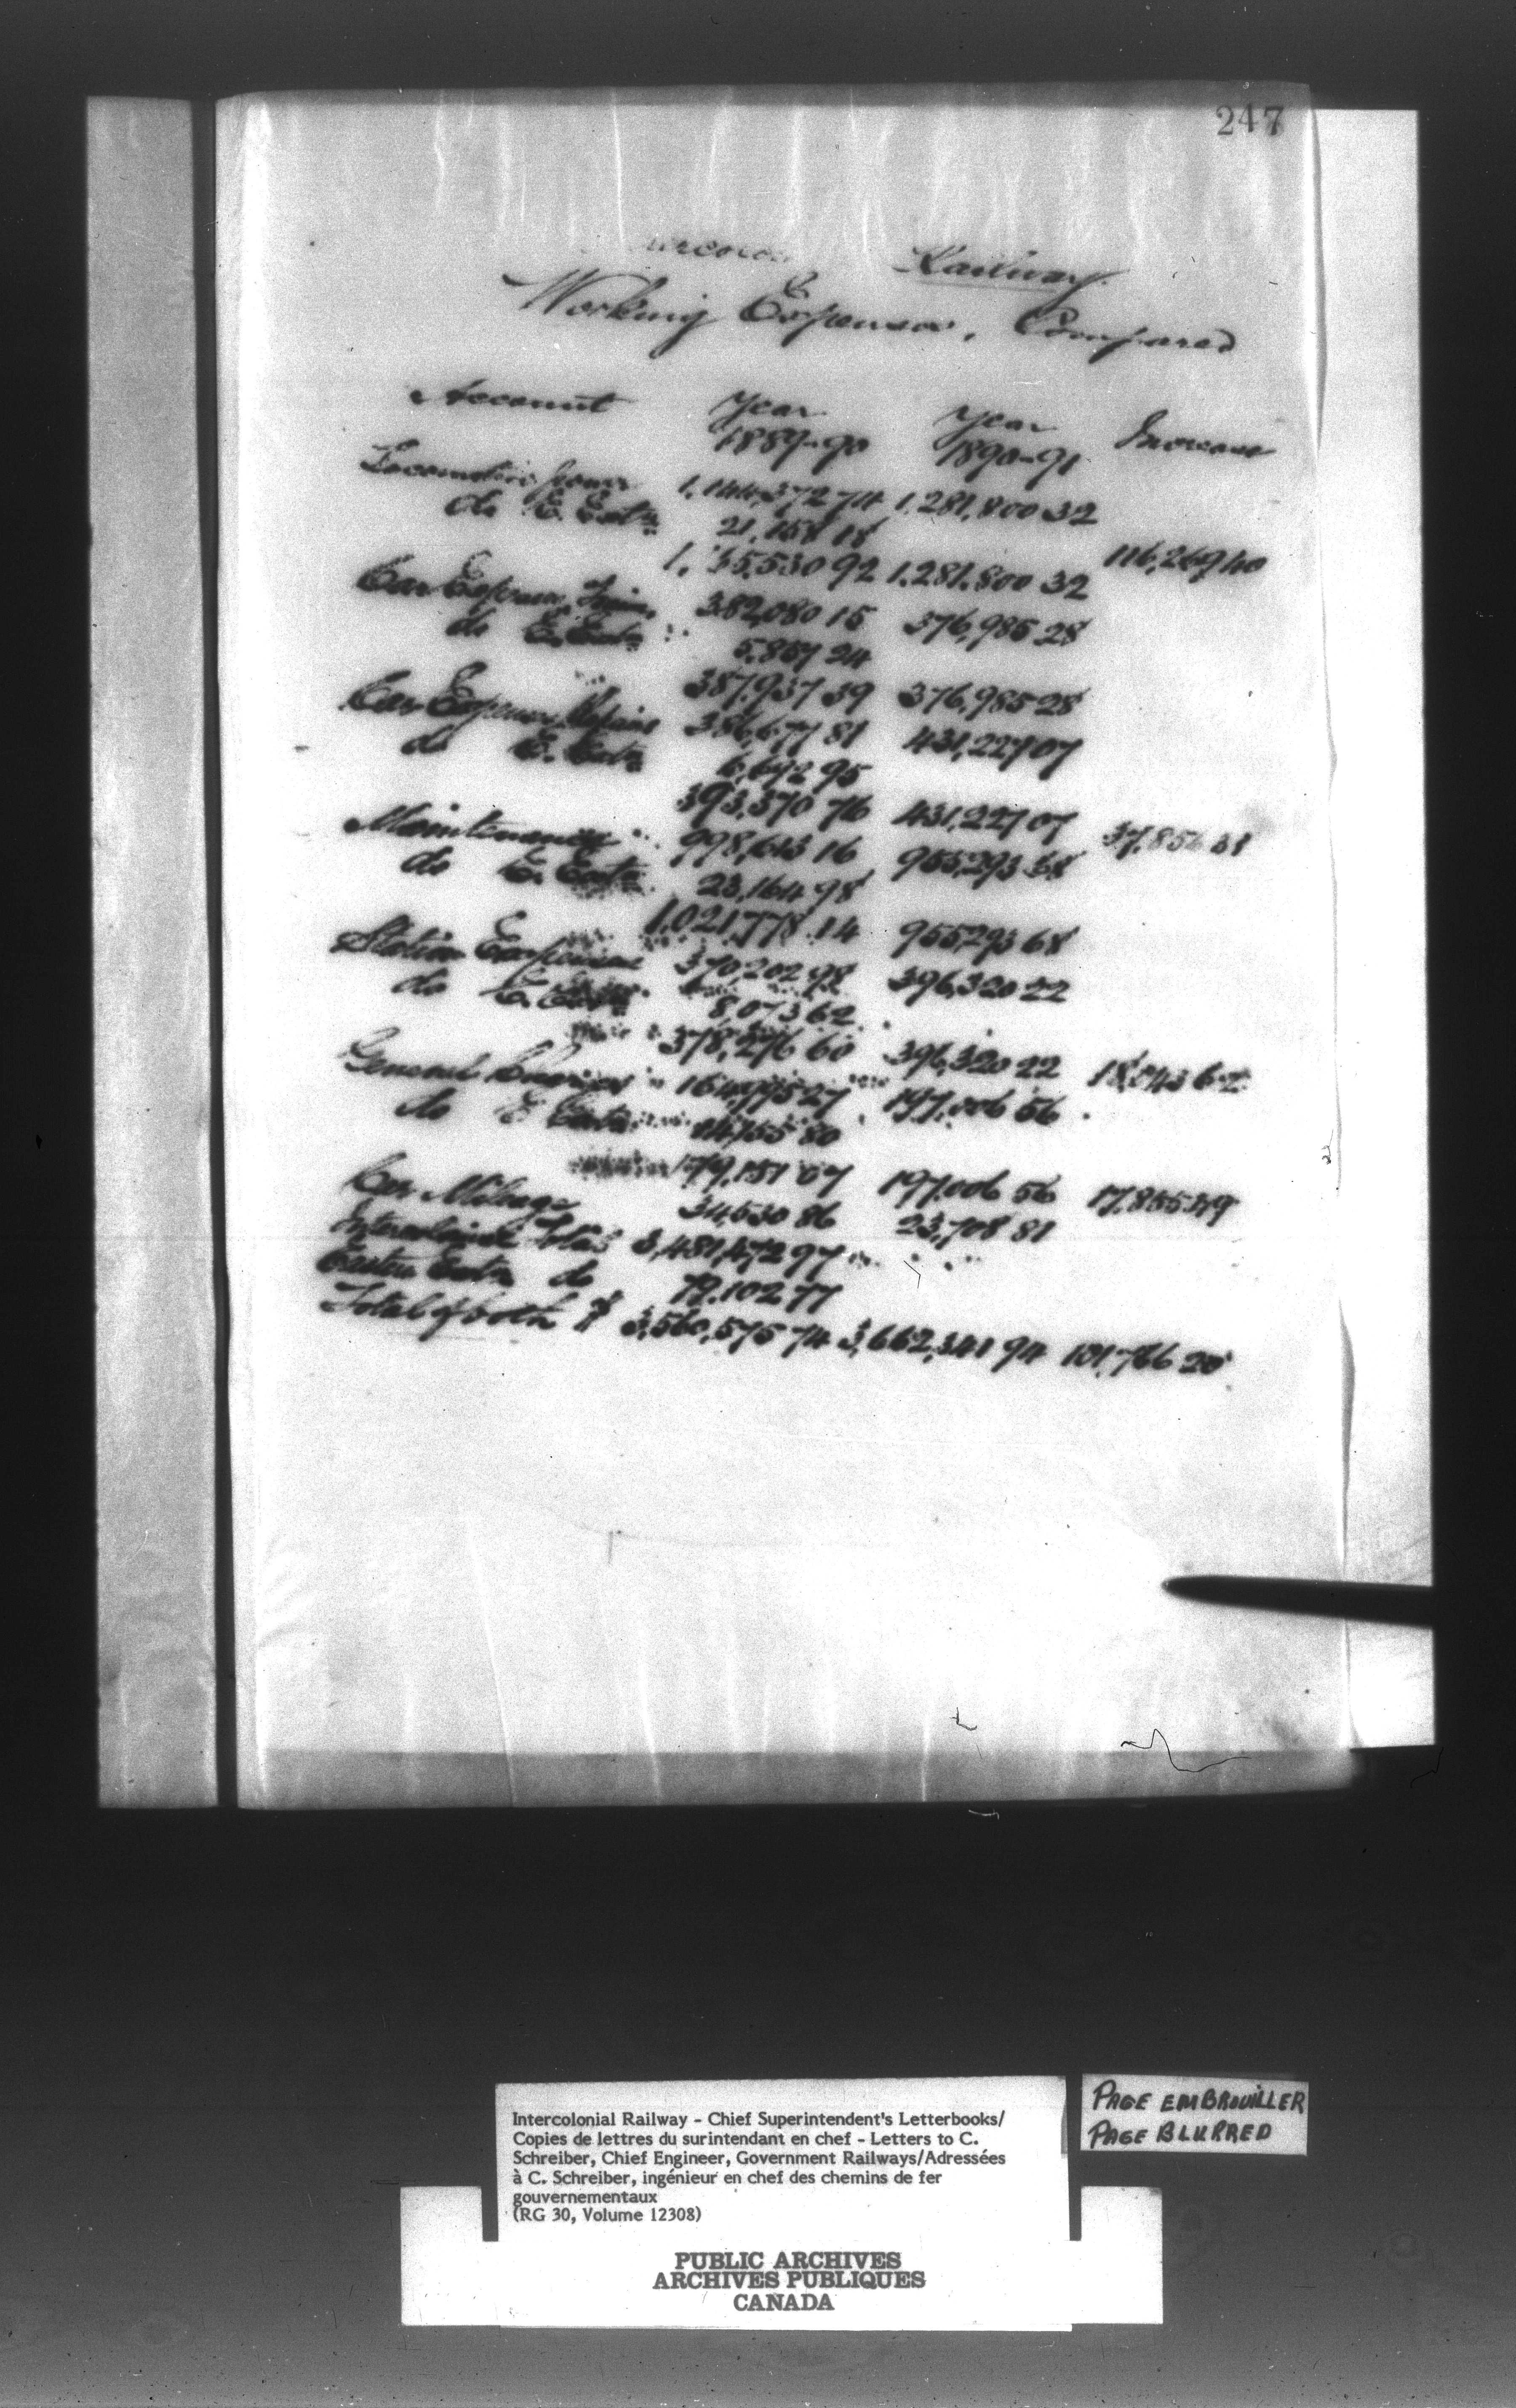 247
Railway.
Working Expenses, Compared
Account Year 1889-90 Year 1890-91 Increase
Locomotive power 1,144,372 74 1,281,800 32
do E. Extn 21,158 18
1,165,530 92 1,281,800 32 116,269 40
Car Expenses Train 382,080 15 376,985 28
do E. Extn 5,857 24
387,937 39 376,985 28
Car Expenses Repairs 386,677 81 431,227 07
do E. Extn 6,692 95
393,370 76 431,227 07 37,856 31
Maintenance 998,613 16 955,293 68
do E. Extn 23,164 98
1,021,778 14 955,293 68
Station Expenses 370,202 98 396,320 22
do E. Extn 8,073 62
378,276 60 396,320 22 18,043 62
General Charges 164,995 27 197,006 56
do E Extn 14,155 80
179,151 07 197,006 56 17,855 49
Car Mileage 34,530 86 23,708 81
Intercolonial Total 3,481,472 97
Eastern Extn do 79,102 77
Total of both $ 3,560,575 74 3,662,341 94 101,766 20
Intercolonial Railway - Chief Superintendent's Letterbooks/
Copies de lettres du surintendant en chef - Letters to C.
Schreiber, Chief Engineer, Government Railways/Adressées
à C. Schreiber, ingénieur en chef des chemins de fer
gouvernementaux
(RG 30, Volume 12308)
PAGE EMBROUILLER
PAGE BLURRED
PUBLIC ARCHIVES
ARCHIVES PUBLIQUES
CANADA